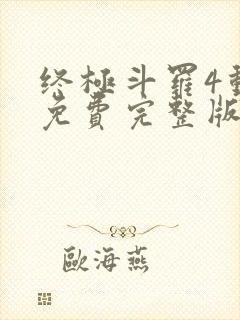 终極斗羅4動
免費完整版
歐海燕